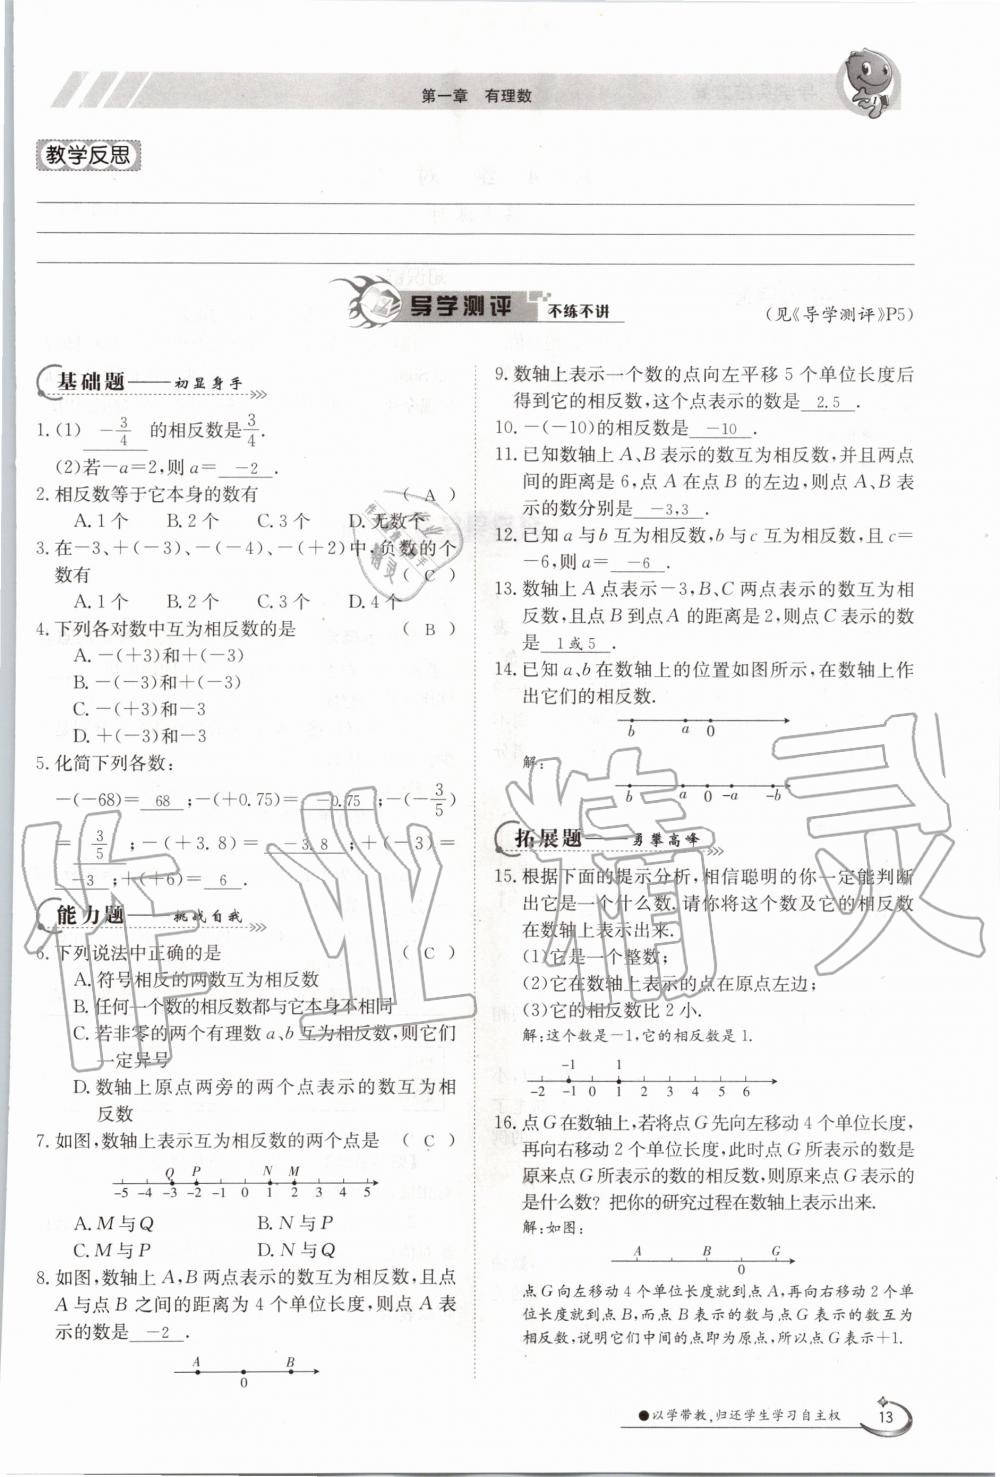 第一章 有理数
教学反思
导学测评 不练不讲
(见《导学测评》P5)
基础题——初显身手
1.(1) -3/4 的相反数是3/4.
(2)若-a=2,则a= -2 .
2.相反数等于它本身的数有 ( A )
A.1个 B.2个 C.3个 D.无数个
3.在-3、+(-3)、-(-4)、-(+2)中,负数的个
数有 ( C )
A.1个 B.2个 C.3个 D.4个
4.下列各对数中互为相反数的是 ( B )
A.-(+3)和+(-3)
B.-(-3)和+(-3)
C.-(+3)和-3
D.+(-3)和-3
5.化简下列各数:
-(-68)= 68 ;-(+0.75)= -0.75 ;-(-3/5)
= 3/5 ;-(+3.8)= -3.8 ;+(-3)=
-3 ;+(+6)= 6 .
能力题——挑战自我
6.下列说法中正确的是 ( C )
A.符号相反的两数互为相反数
B.任何一个数的相反数都与它本身不相同
C.若非零的两个有理数a、b互为相反数,则它们
一定异号
D.数轴上原点两旁的两个点表示的数互为相
反数
7.如图,数轴上表示互为相反数的两个点是 ( C )
Q P N M
-5 -4 -3 -2 -1 0 1 2 3 4 5
A.M与Q B.N与P
C.M与P D.N与Q
8.如图,数轴上A,B两点表示的数互为相反数,且点
A与点B之间的距离为4个单位长度,则点A表
示的数是 -2 .
A B
0
9.数轴上表示一个数的点向左平移5个单位长度后
得到它的相反数,这个点表示的数是 2.5 .
10.-(-10)的相反数是 -10 .
11.已知数轴上A、B表示的数互为相反数,并且两点
间的距离是6,点A在点B的左边,则点A、B表
示的数分别是 -3,3 .
12.已知a与b互为相反数,b与c互为相反数,且c=
-6,则a= -6 .
13.数轴上A点表示-3,B、C两点表示的数互为相
反数,且点B到点A的距离是2,则点C表示的数
是 1或5 .
14.已知a、b在数轴上的位置如图所示,在数轴上作
出它们的相反数.
b a 0
解:
b a 0 -a -b
拓展题——勇攀高峰
15.根据下面的提示分析,相信聪明的你一定能判断
出它是一个什么数,请你将这个数及它的相反数
在数轴上表示出来.
(1)它是一个整数;
(2)它在数轴上表示的点在原点左边;
(3)它的相反数比2小.
解:这个数是-1,它的相反数是1.
-1 1
-2 -1 0 1 2 3 4 5 6
16.点G在数轴上,若将点G先向左移动4个单位长度,
再向右移动2个单位长度,此时点G所表示的数是
原来点G所表示的数的相反数,则原来点G表示的
是什么数?把你的研究过程在数轴上表示出来.
解:如图:
A B G
0
点G向左移动4个单位长度就到点A,再向右移动2个单
位长度就到点B,而点B表示的数与点G表示的数互为
相反数,说明它们中间的点即为原点,所以点G表示+1.
●以学带教,归还学生学习自主权
13
作业精灵